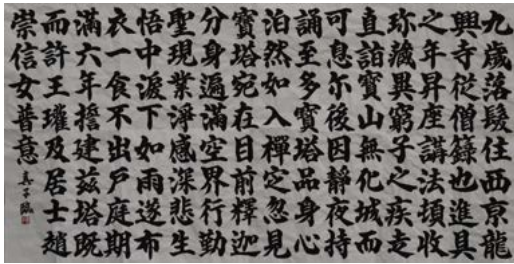 九歲落髮住西京龍
興寺從僧籙也進具
之年昇座講法頓收
珍藏異窮子之疾走
直詣寶山無化城而
可息尓後因靜夜持
誦至多寶塔品身心
泊然如入禪定忽見
寶塔宛在目前釋迦
分身遍滿空界行勤
聖現業淨感深悲生
悟中淚下如雨遂布
衣一食不出戶庭期
滿六年擔建茲塔既
而許王瓘及居士趙
崇信女普意